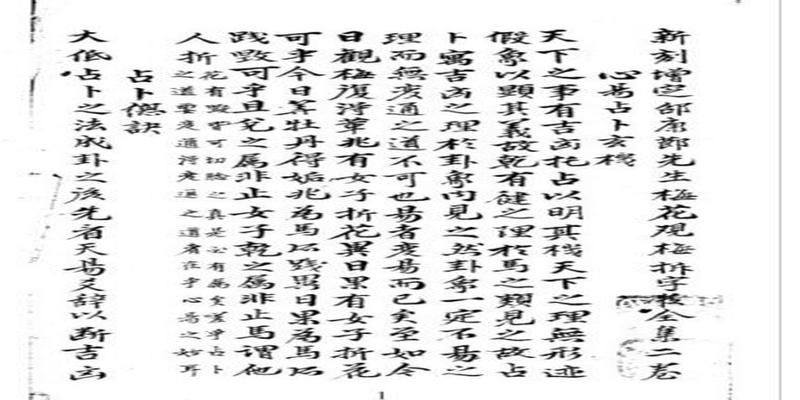 新刻增定邵康節先生梅花观梅拆字数全集二卷
心易占卜玄機
天下之事有吉凶托占以明其機天下之理無形迹
假象以顯其義故乾有健之理於馬之類見之故占
卜寓吉凶之理於卦象內見之然卦象一定不易之
理而無变通之道不可也易者变易而已矣至如今
日觀梅復得革兆有女子折花異日果有女子折花
可乎今日筭牡丹得姤兆為馬所踐異日果為馬所
践毁可乎且兌之属非止女子乾之属非止馬谓他
人折花有毁皆可切驗之真是必有属矣嗟乎占卜
之道要变通得变通之道者在乎心易之妙耳
占卜總訣
大低占卜之法成卦之後先看天易爻辞以断吉凶
1